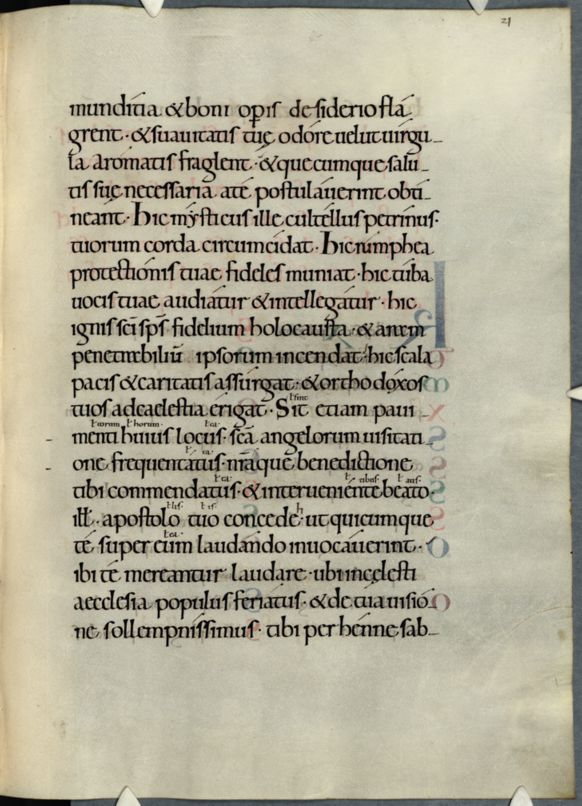 21
munditia & boni op̄is desiderio fla
grent · & suavitatis tuę odore velut virgu
la aromatis fraglent · & quecumque salu
tis suę necessaria a te postulaverint obti
neant · Hic mysticus ille cultellus petrinus ·
tuorum corda circumcidat · Hic rumphea
protectionis tuae fideles muniat · hic tuba
vocis tuae audiatur & intellegatur · hic
ignis sc̄i sp̄s fidelium holocausta · & ararum
penetrabiliū ipsorum incendat · hic scala
pacis & caritatis assurgat · & orthodoxos
tuos ad caelestia erigat · Sit etiam pavi
menti huius locus · sc̄a angelorum visitati
one frequentatus · manuque benedictione
tibi commendatus · & interveniente beato
ill̄ · apostolo tuo concede · ut quicumque
te super eum laudando invocaverint ·
ibi te mereantur laudare · ubi in cęlesti
aecclesia populus feriatus · & de tua visio
ne sollempnissimus · tibi per henne sab